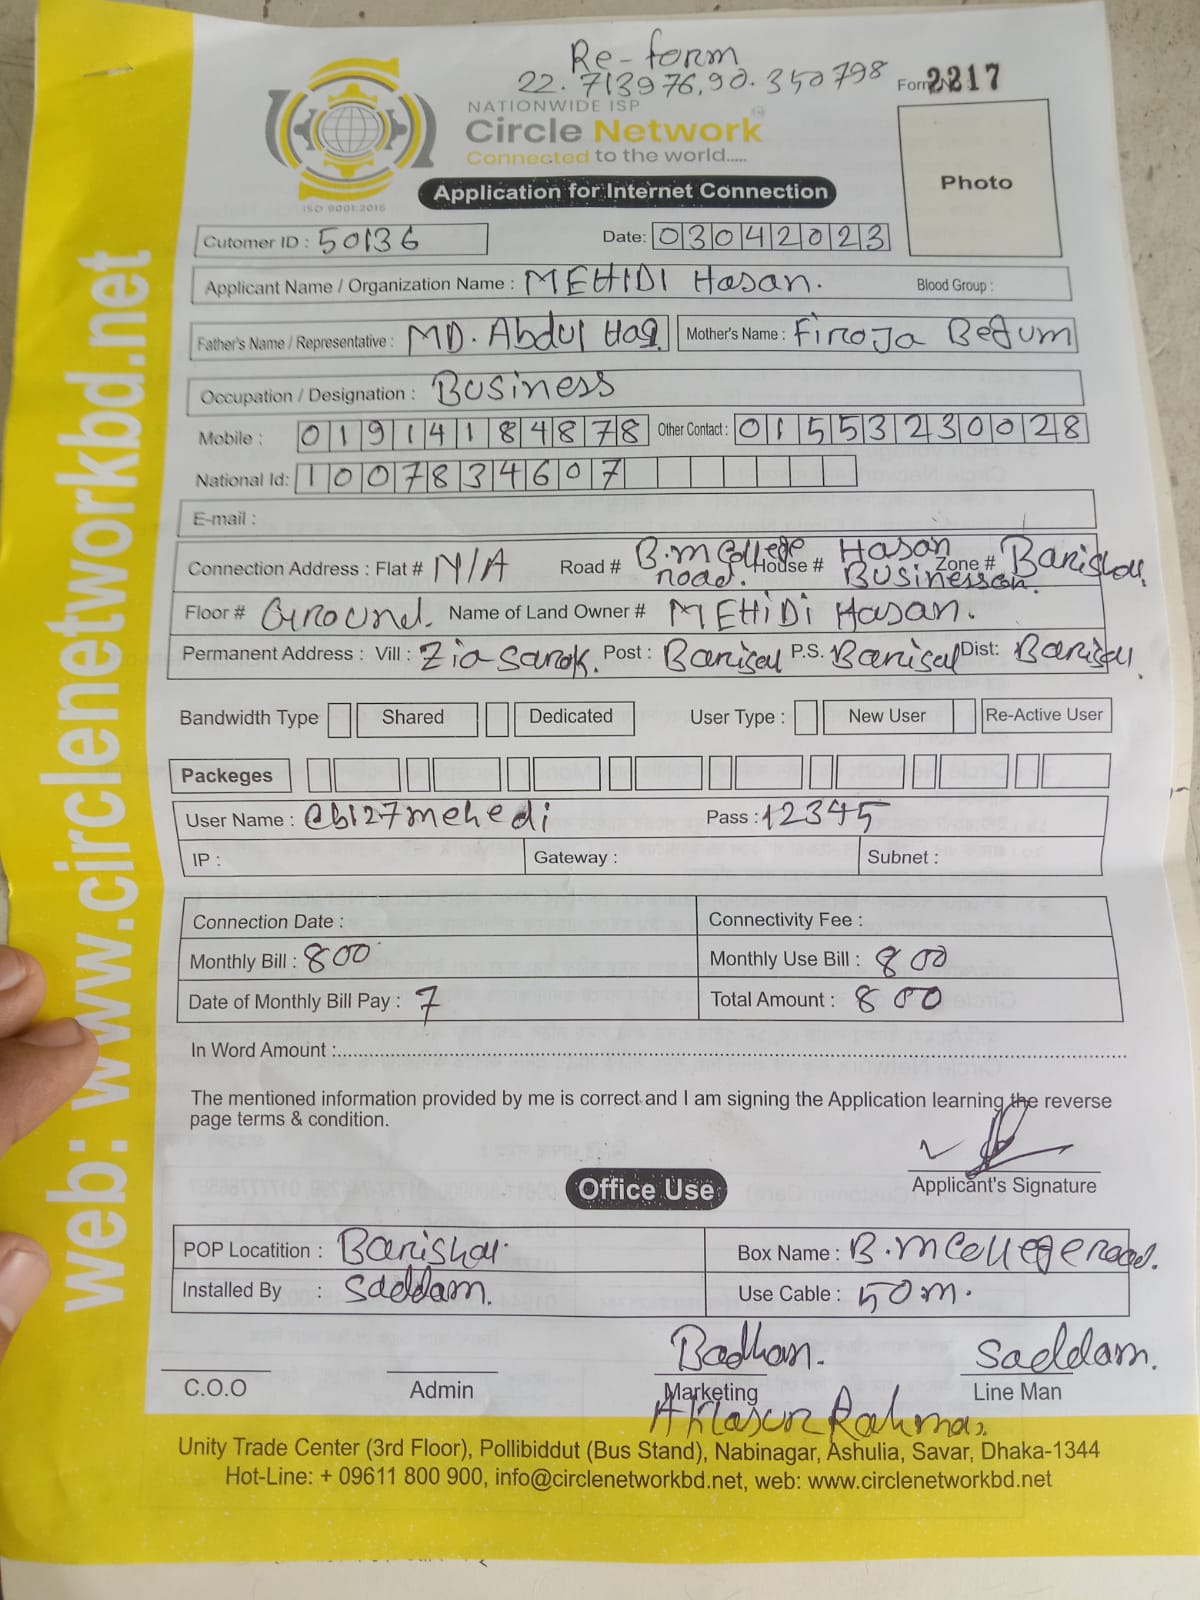 Re-form
22.713976,90.350798
Form No 2217
NATIONWIDE ISP
Circle Network
Connected to the world.....
ISO 9001:2015
Application for Internet Connection
Photo
Cutomer ID : 50136 Date: 03042023
Applicant Name / Organization Name : MEHIDI Hasan. Blood Group :
Father's Name / Representative : MD. Abdul Haq Mother's Name : Firoja Begum
Occupation / Designation : Business
Mobile : 01914184878 Other Contact : 01553230028
National Id: 1007834607
E-mail :
Connection Address : Flat # N/A Road # B.m College road. House # Hasan Businesson. Zone # Barishal.
Floor # Ground. Name of Land Owner # MEHIDI Hasan.
Permanent Address : Vill : Zia Sarak. Post : Barisal P.S. Barisal Dist: Barisal.
Bandwidth Type Shared Dedicated User Type : New User Re-Active User
Packeges
User Name : @b127mehedi Pass : 12345
IP : Gateway : Subnet :
Connection Date : Connectivity Fee :
Monthly Bill : 800 Monthly Use Bill : 800
Date of Monthly Bill Pay : 7 Total Amount : 800
In Word Amount :
The mentioned information provided by me is correct and I am signing the Application learning the reverse
page terms & condition.
Applicant's Signature
Office Use
POP Locatition : Barishal. Box Name : B.m College road.
Installed By : Saddam. Use Cable : 50m.
Badhan. Saddam.
C.O.O Admin Marketing Line Man
Rahman
Unity Trade Center (3rd Floor), Pollibiddut (Bus Stand), Nabinagar, Ashulia, Savar, Dhaka-1344
Hot-Line: + 09611 800 900, info@circlenetworkbd.net, web: www.circlenetworkbd.net
web: www.circlenetworkbd.net